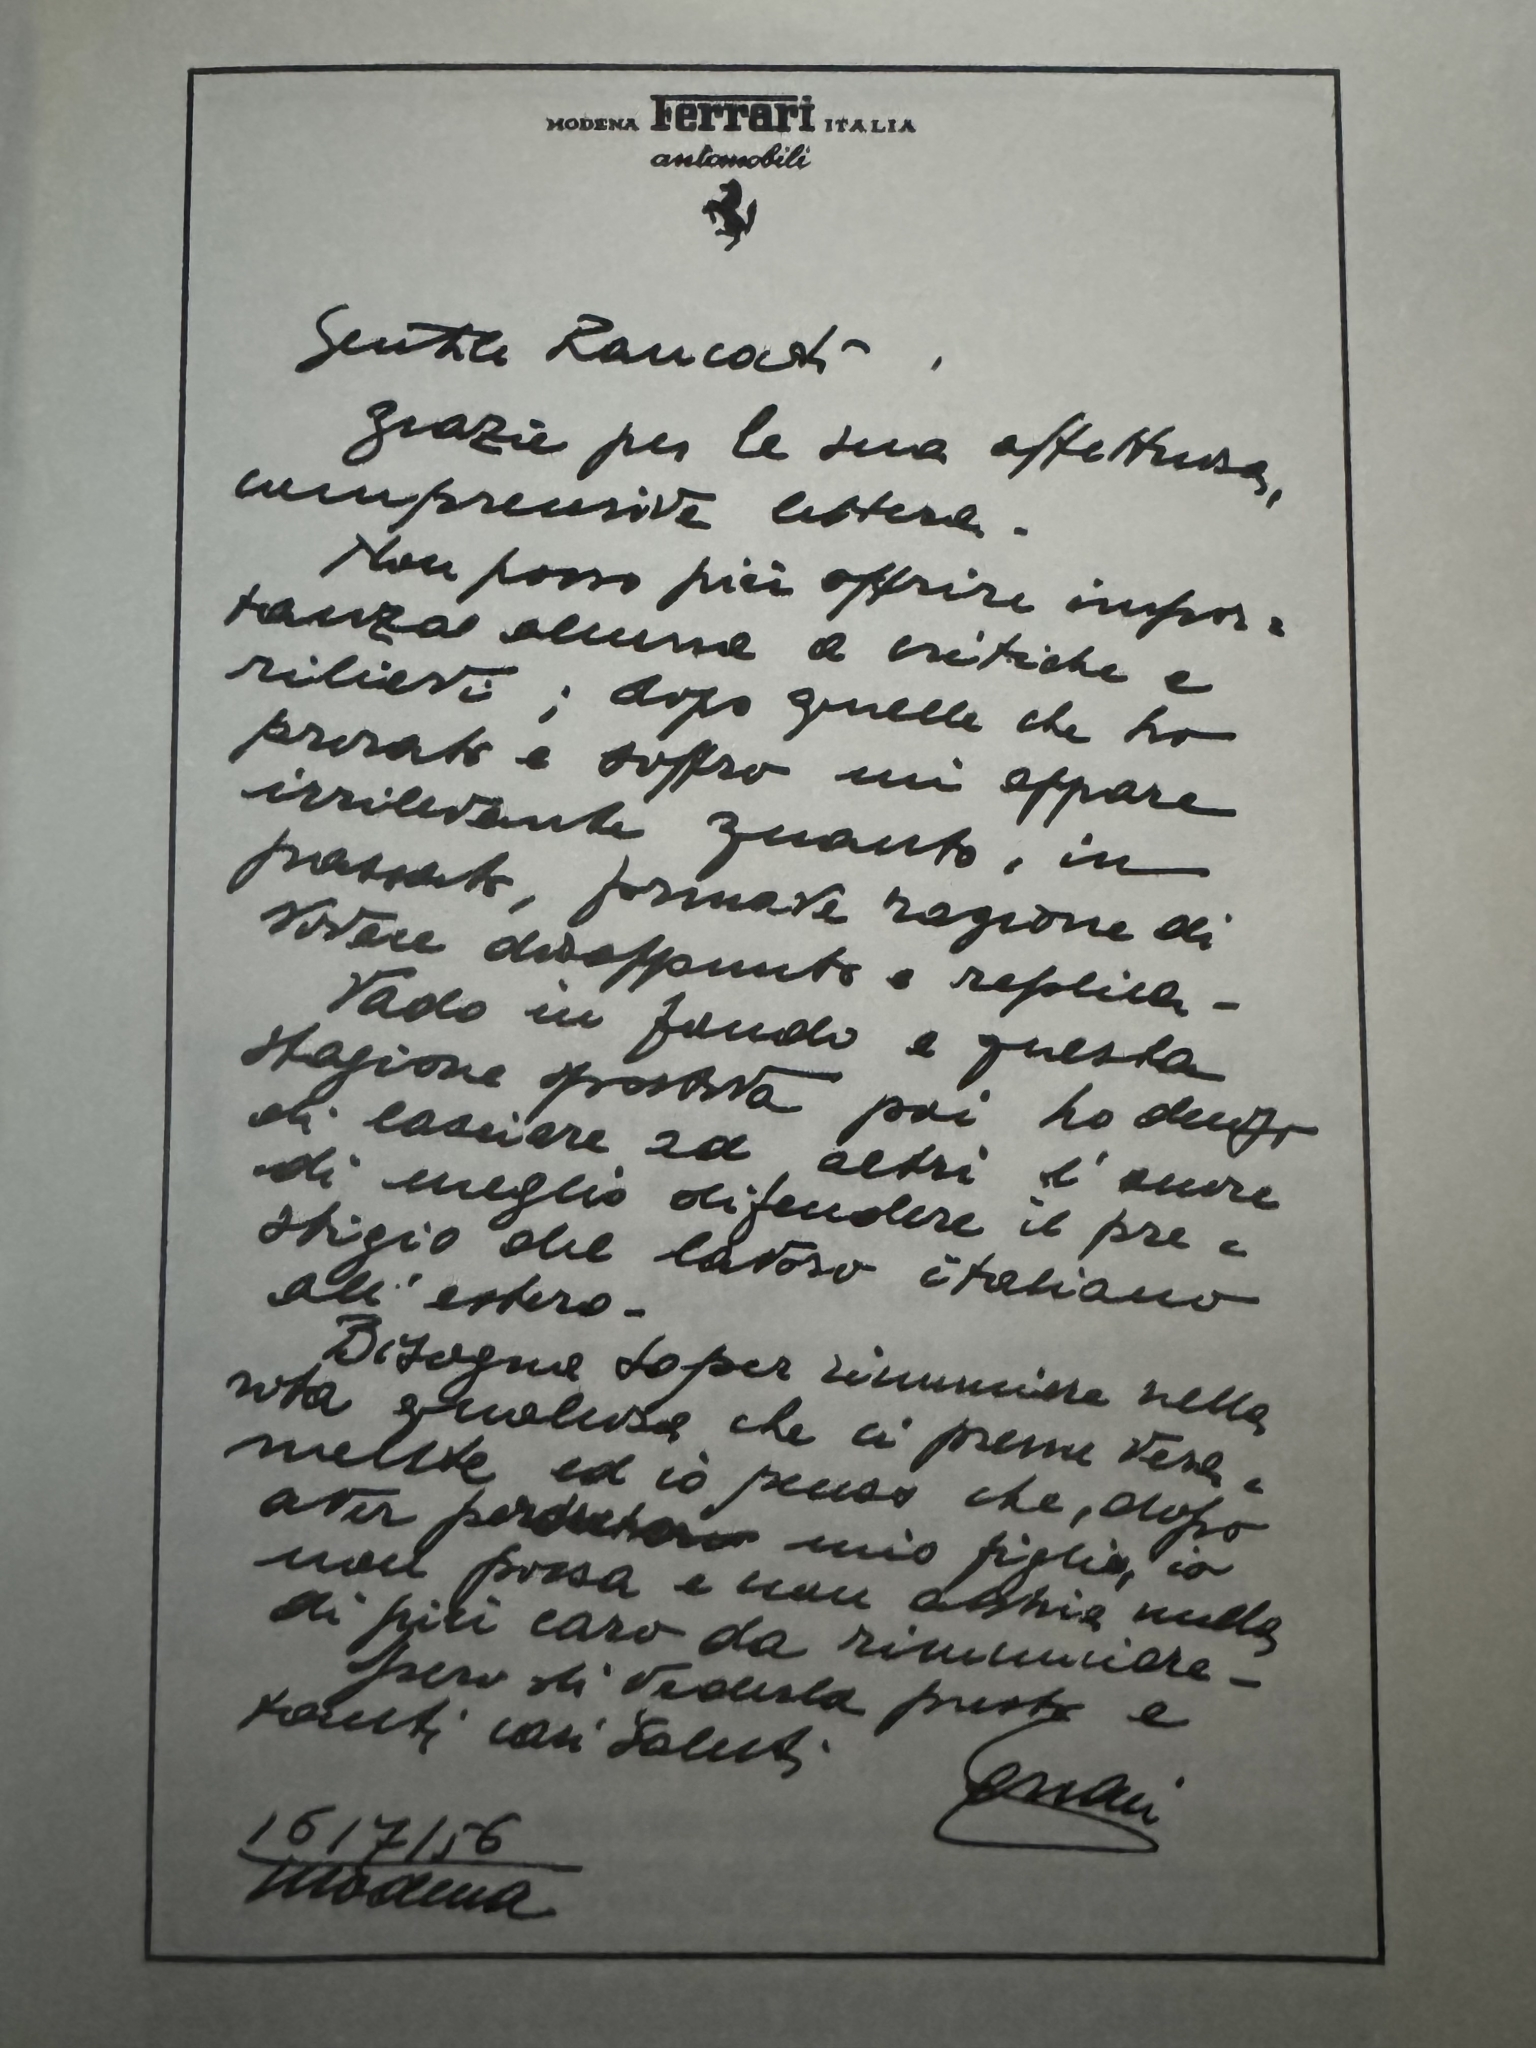 MODENA Ferrari ITALIA
automobili
Gentile Rancati,
grazie per la sua affettuosa,
comprensiva lettera -
Non posso più offrire impor=
tanza alcuna a critiche e
rilievi; dopo quello che ho
provato e soffro mi appare
irrilevante quanto, in
passato, formava ragione di
vivere disappunto e replica -
Vado in fondo a questa
stagione sportiva poi ho deciso
di lasciare ad altri l'onore
di meglio difendere il pre=
stigio del lavoro italiano
all'estero -
Bisogna saper rinunciare nella
vita a qualcosa che ci preme vera=
mente ed io penso che, dopo
aver perduto mio figlio, io
non possa e non abbia nulla
di più caro da rinunciare -
Spero di vederla presto e
tanti cari saluti
Ferrari
16/7/56
Modena